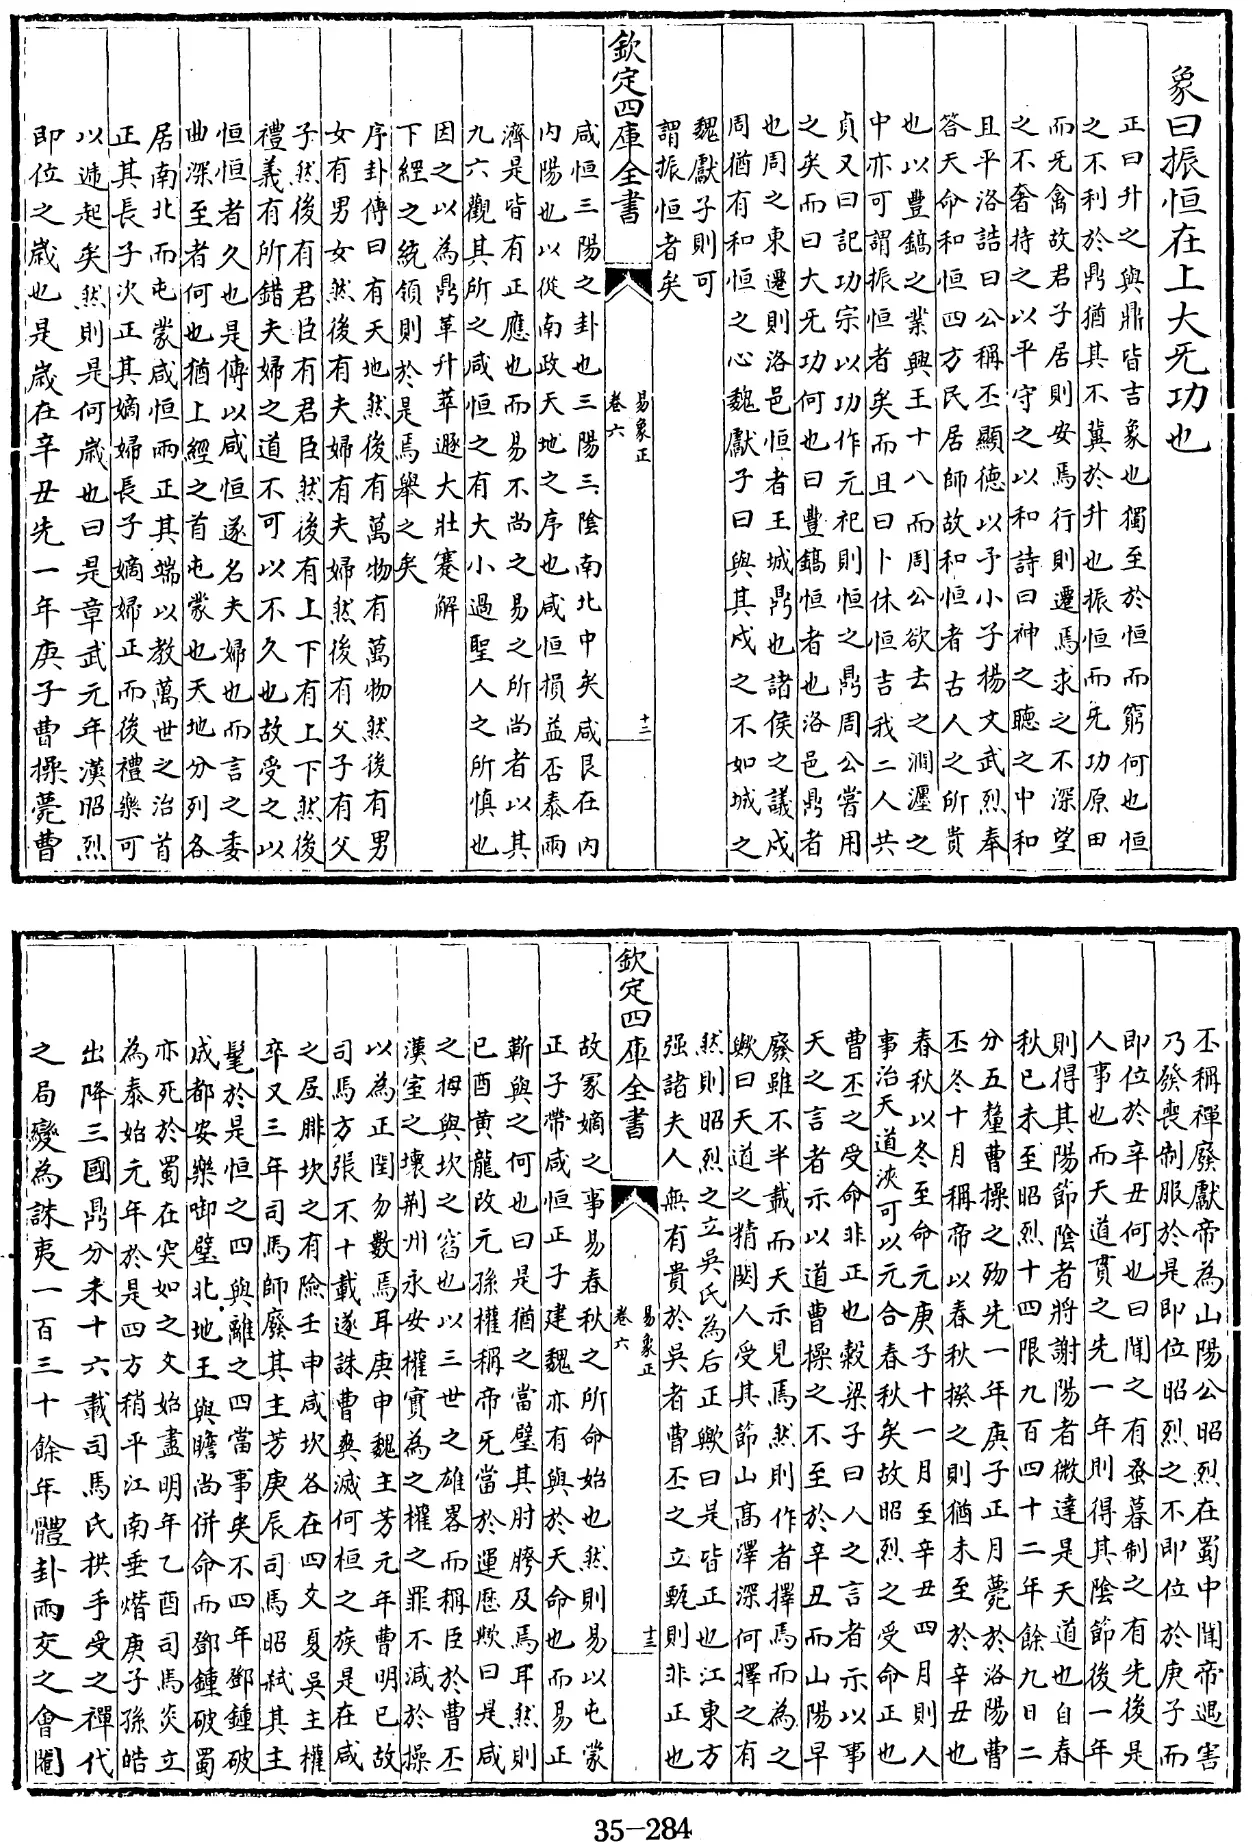 象曰振恒在上大无功也
正曰升之與鼎皆吉象也獨至於恒而窮何也恒
之不利於鼎猶其不冀於升也振恒而无功原田
而无禽故君子居則安焉行則遷焉求之不深望
之不奢持之以平守之以和詩曰神之聽之中和
且平洛誥曰公稱丕顯德以予小子楊文武烈奉
答天命和恒四方民居師故和恒者古人之所貴
也以豐鎬之業興王十八而周公欲去之澗瀍之
中亦可謂振恒者矣而且曰卜休恒吉我二人共
貞又曰記功宗以功作元祀則恒之鼎周公嘗用
之矣而曰大无功何也曰豐鎬恒者也洛邑鼎者
也周之東遷則洛邑恒者王城鼎也諸侯之議戍
周猶有和恒之心魏獻子曰與其戍之不如城之
魏獻子則可
謂振恒者矣
欽定四庫全書
易象正
卷六
十二
咸恒三陽之卦也三陽三陰南北中矣咸艮在内
内陽也以從南政天地之序也咸恒損益否泰兩
濟是皆有正應也而易不尚之易之所尚者以其
九六觀其所之咸恒之有大小過聖人之所慎也
因之以為鼎革升萃遯大壯蹇解
下經之統領則於是焉舉之矣
序卦傳曰有天地然後有萬物有萬物然後有男
女有男女然後有夫婦有夫婦然後有父子有父
子然後有君臣有君臣然後有上下有上下然後
禮義有所錯夫婦之道不可以不久也故受之以
恒恒者久也是傳以咸恒遂名夫婦也而言之委
曲深至者何也猶上經之首屯蒙也天地分列各
居南北而屯蒙咸恒兩正其端以教萬世之治首
正其長子次正其嫡婦長子嫡婦正而後禮樂可
以遞起矣然則是何歲也曰是章武元年漢昭烈
即位之歲也是歲在辛丑先一年庚子曹操薨曹
丕稱禪廢獻帝為山陽公昭烈在蜀中聞帝遇害
乃發喪制服於是即位昭烈之不即位於庚子而
即位於辛丑何也曰聞之有蚤暮制之有先後是
人事也而天道貫之先一年則得其陰節後一年
則得其陽節陰者將謝陽者微達是天道也自春
秋已未至昭烈十四限九百四十二年餘九日二
分五釐曹操之歿先一年庚子正月薨於洛陽曹
丕冬十月稱帝以春秋揆之則猶未至於辛丑也
春秋以冬至命元庚子十一月至辛丑四月則人
事治天道浹可以元合春秋矣故昭烈之受命正也
曹丕之受命非正也穀梁子曰人之言者示以事
天之言者示以道曹操之不至於辛丑而山陽早
廢雖不半載而天示見焉然則作者擇焉而為之
歟曰天道之精闋人受其節山髙澤深何擇之有
然則昭烈之立吳氏為后正歟曰是皆正也江東方
强諸夫人無有貴於吳者曹丕之立甄則非正也
欽定四庫全書
易象正
卷六
十三
故冢嫡之事易春秋之所命始也然則易以屯蒙
正子帶咸恒正子建魏亦有與於天命也而易正
蘄與之何也曰是猶之當璧其肘膀及焉耳然則
已酉黄龍改元孫權稱帝无當於運歷歟曰是咸
之拇與坎之窞也以三世之雄畧而稱臣於曹丕
漢室之壞荆州永安權實為之權之罪不減於操
以為正閏勿數焉耳庚申魏主芳元年曹明已故
司馬方張不十載遂誅曹爽滅何桓之族是在咸
之居腓坎之有險壬申咸坎各在四爻夏吳主權
卒又三年司馬師廢其主芳庚辰司馬昭弑其主
髦於是恒之四與離之四當事矣不四年鄧鍾破
成都安樂啣璧北地王與瞻尚併命而鄧鍾破蜀
亦死於蜀在突如之爻始盡明年乙酉司馬炎立
為泰始元年於是四方稍平江南垂熸庚子孫皓
出降三國鼎分未十六載司馬氏拱手受之禪代
之局變為誅夷一百三十餘年體卦兩交之會闔
35-284